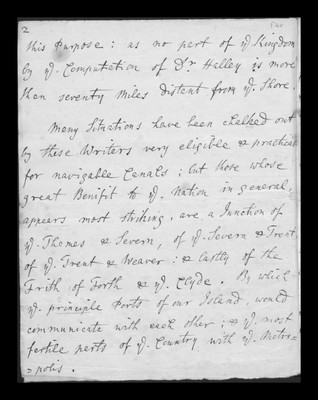 2
this Purpose: as no part of yᵉ Kingdom
by yᵉ Computation of Dr Halley is more
than seventy Miles distant from yᵉ Shore.
Many Situations have been chalked out
by these Writers very eligible & practical
for navigable Canals: but those whose
great Benifit to yᵉ Nation in general,
appears most striking, are a Junction of
yᵉ Thames & Severn, of yᵉ Severn & Trent
of yᵉ Trent & Weaver: & lastly of the
Frith of Forth & yᵉ Clyde. By which
yᵉ principle Ports of our Island, would
communicate with each other; & yᵉ most
fertile parts of yᵉ Country with yᵉ Metro=
=polis.